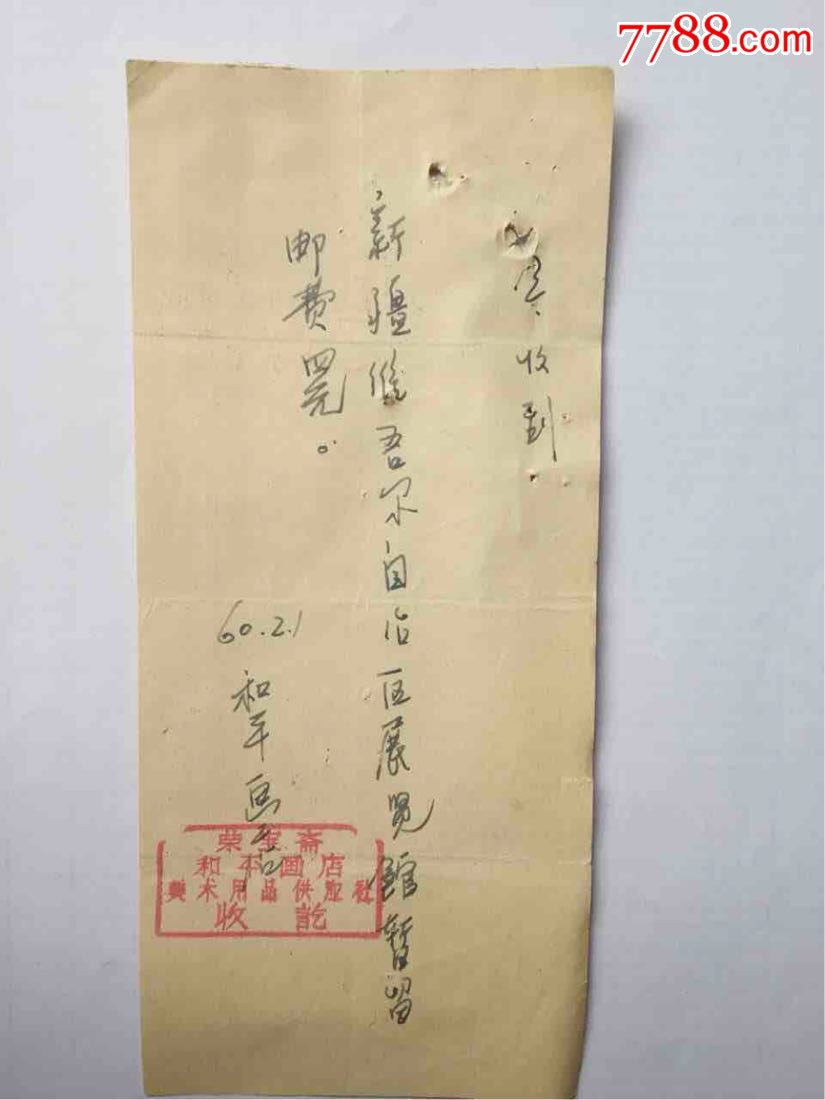 7788.com
收到
新疆维吾尔自治区展览馆暂留
邮费四元。
60.2.1
和平画店
荣宝斋
和平画店
美术用品供应社
收訖